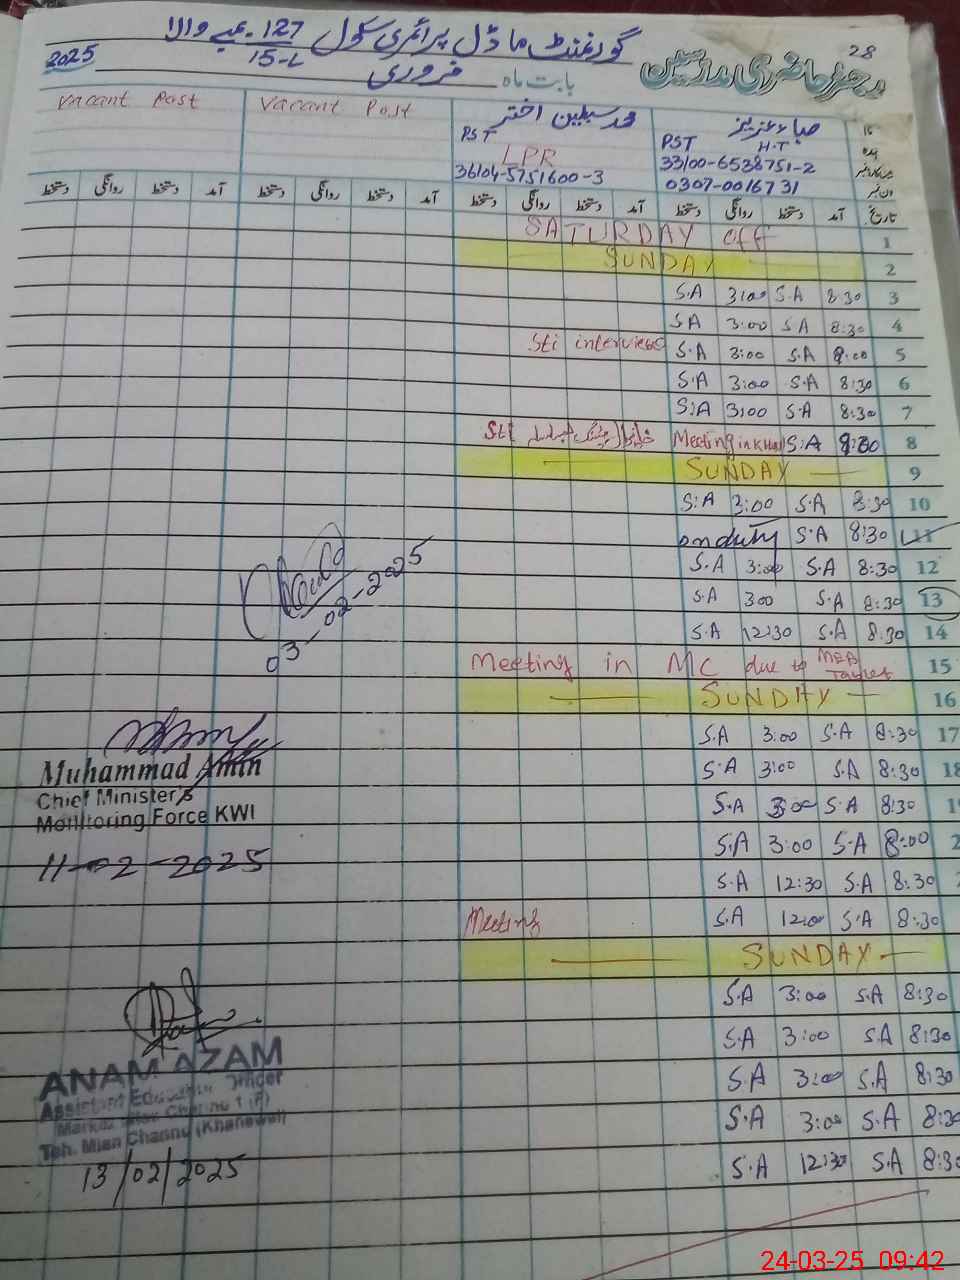 28
گورنمنٹ ماڈل پرائمری سکول 127/15-L
2025 بابت ماہ فروری
رجسٹر حاضری مدرسین
صباء عزیز محمد سبطین اختر Vacant Post Vacant Post
PST H.T PST LPR
33100-6538751-2 36104-5751600-3
0307-0016731
تاریخ آمد دستخط روانگی دستخط آمد دستخط روانگی دستخط آمد دستخط روانگی دستخط آمد دستخط روانگی دستخط
SATURDAY off 1
SUNDAY 2
S.A 3:00 S.A 8:30 3
S.A 3:00 S.A 8:30 4
Sti interviews S.A 3:00 S.A 8:00 5
S.A 3:00 S.A 8:30 6
S.A 3:00 S.A 8:30 7
Sti Meeting in S.A 8:30 8
SUNDAY 9
S.A 3:00 S.A 8:30 10
on duty S.A 8:30 11
S.A 3:00 S.A 8:30 12
S.A 3:00 S.A 8:30 13
S.A 12:30 S.A 8:30 14
Meeting in MC due to 15
SUNDAY 16
S.A 3:00 S.A 8:30 17
S.A 3:00 S.A 8:30 18
S.A 3:00 S.A 8:30
S.A 3:00 S.A 8:00 2
S.A 12:30 S.A 8:30
Meeting S.A 12:00 S.A 8:30
SUNDAY
S.A 3:00 S.A 8:30
S.A 3:00 S.A 8:30
S.A 3:00 S.A 8:30
S.A 3:00 S.A 8:30
S.A 12:30 S.A 8:30
03-02-2025
Muhammad Amin
Chief Minister's
Monitoring Force KWI
11-02-2025
ANAM AZAM
Assistant Education Officer
Markaz Mian Channu 1 (F)
Teh. Mian Channu (Khanewal)
13/02/2025
24-03-25 09:42